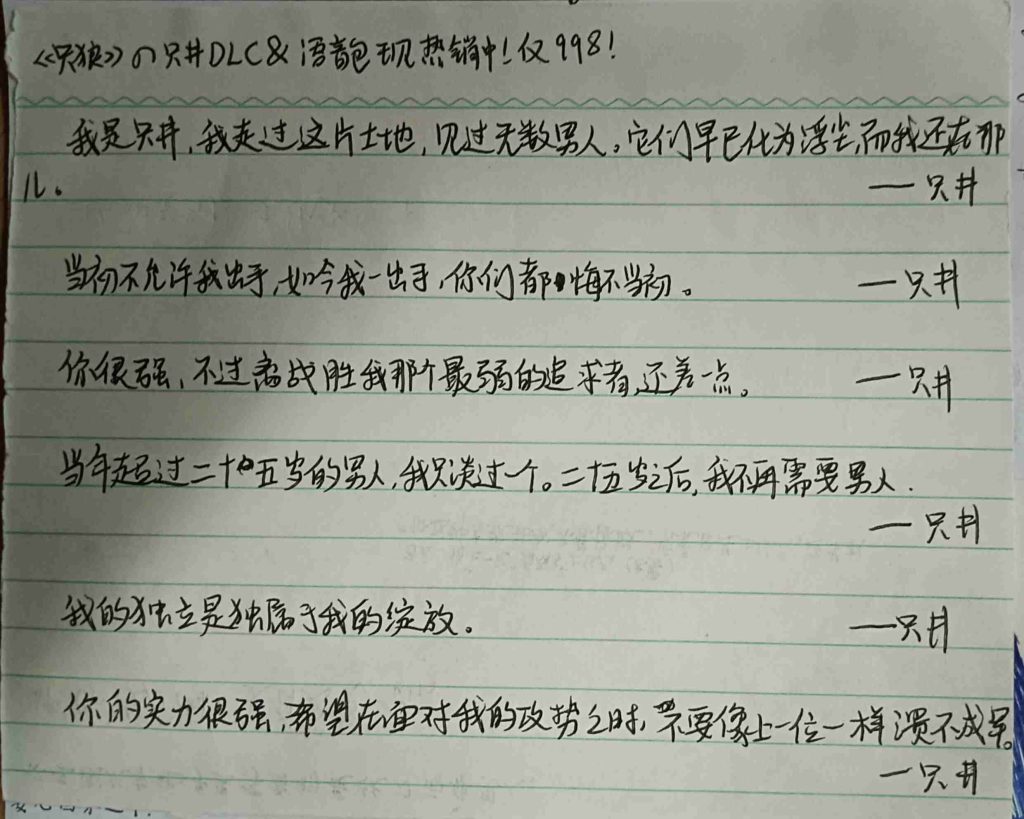 《只狼》の只井DLC&语音包现热销中！仅998！
我是只井，我走过这片土地，见过无数男人。它们早已化为浮尘，而我还在那
儿。 —只井
当初不允许我出手，如今我一出手，你们都悔不当初。 —只井
你很强，不过离战胜我那个最弱的追求者，还差一点。 —只井
当年超过二十五岁的男人，我只谈过一个。二十五岁之后，我不再需要男人.
—只井
我的独立是独属于我的绽放。 —只井
你的实力很强，希望在面对我的攻势之时，不要像上一位一样溃不成军。
—只井